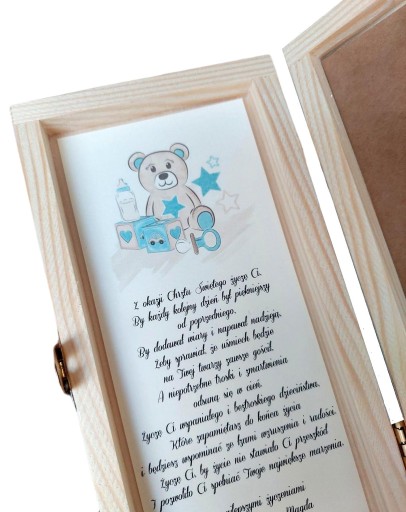 Z okazji Chrztu Świętego życzę Ci,
By każdy kolejny dzień był piękniejszy
od poprzedniego,
By dodawał wiary i napawał nadzieją,
Żeby sprawiał, że uśmiech będzie
na Twej twarzy zawsze gościł,
A niepotrzebne troski i zmartwienia
odsuną się w cień.
Życzę Ci wspaniałego i beztroskiego dzieciństwa,
Które zapamiętasz do końca życia
i będziesz wspominać ze łzami wzruszenia i radości.
Życzę Ci, by życie nie stawiało Ci przeszkód
I pozwoliło Ci spełniać Twoje największe marzenia.
najlepszymi życzeniami
Magda